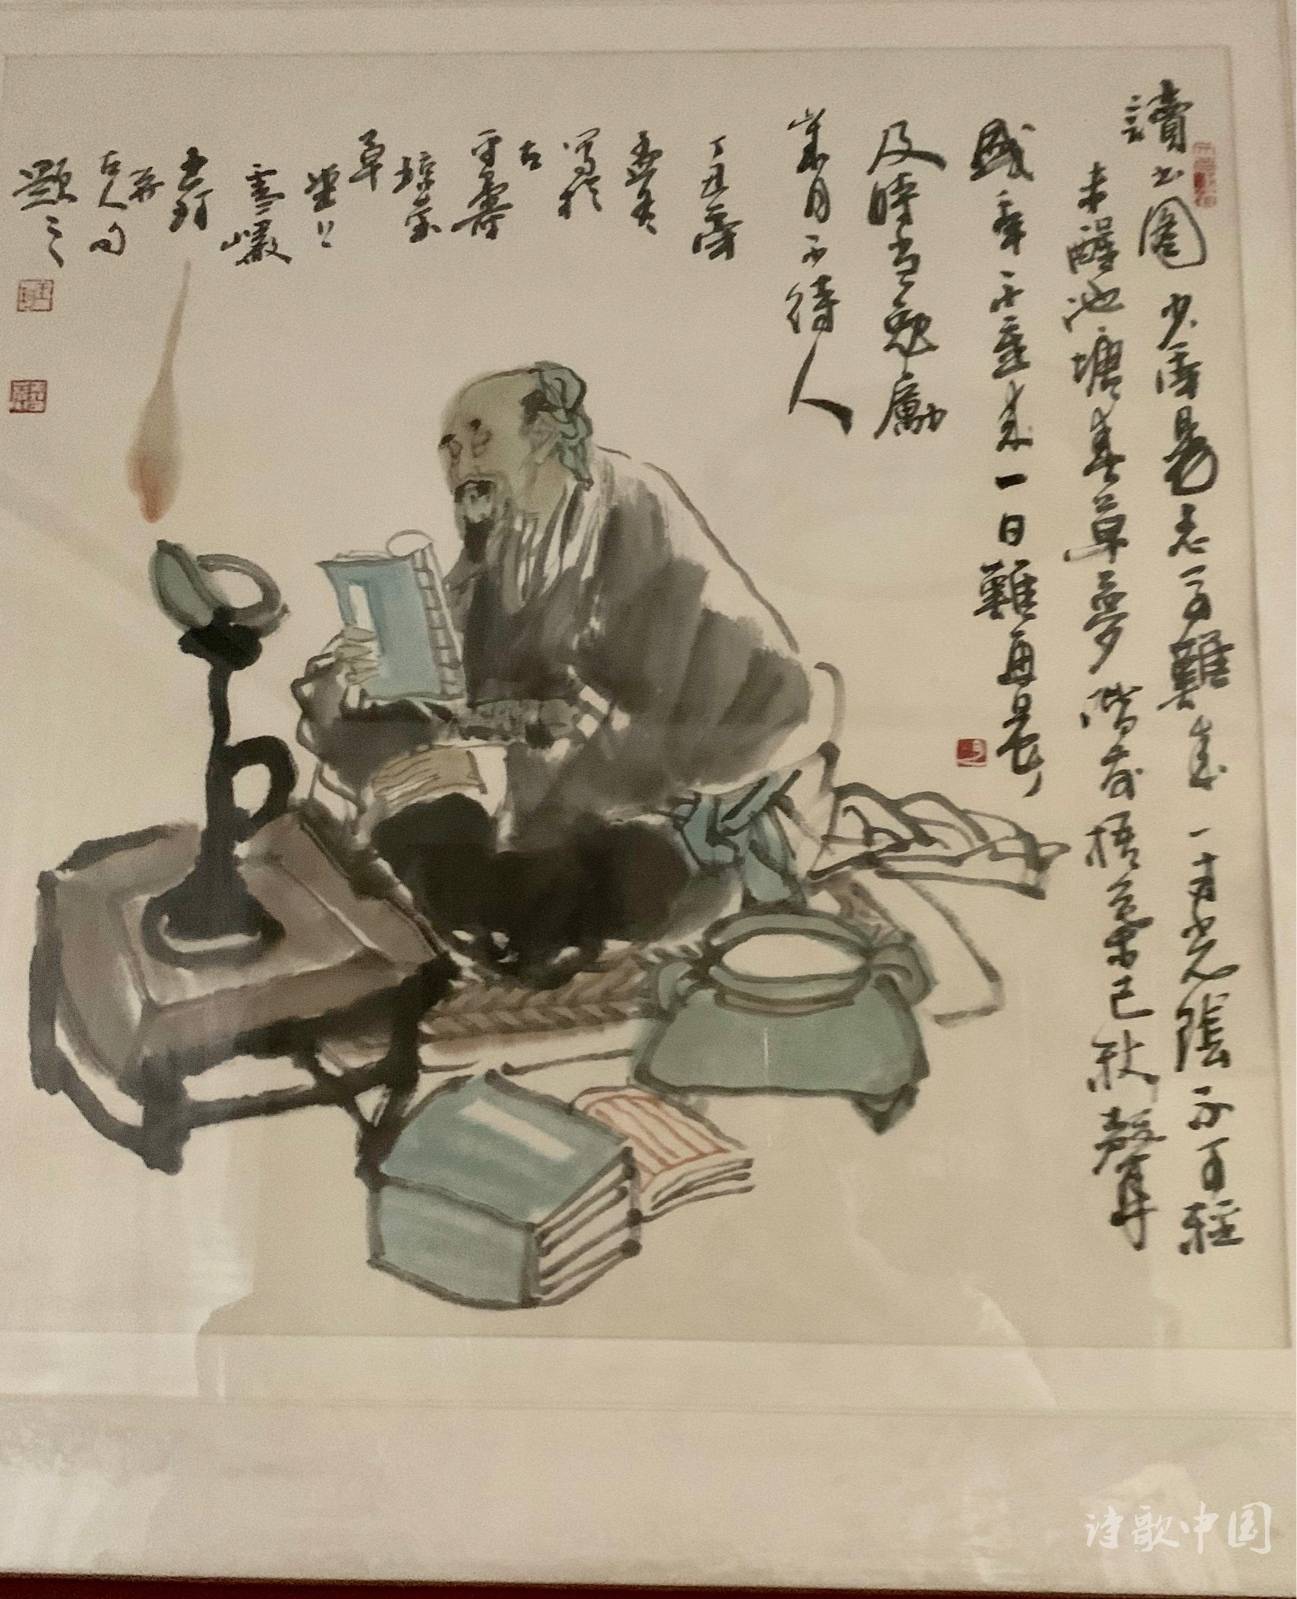 讀書圖 少年易老學難成 一寸光陰不可輕
未醒池塘春草夢 階前梧葉已秋聲
盛年不重來 一日難再晨
及時當勉勵
歲月不待人
丁丑年
寫於
古
草堂
雲巖
並
古人句
題之
诗歌中国